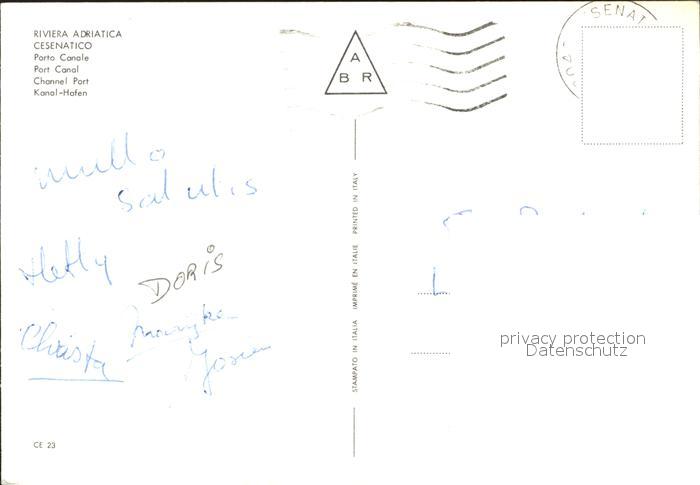 RIVIERA ADRIATICA
CESENATICO
Porto Canale
Port Canal
Channel Port
Kanal-Hafen
A
B R
SENAT
salutis
Hetty
DORIS
Christa
CE 23
STAMPATO IN ITALIA IMPRIMÉ EN ITALIE PRINTED IN ITALY
privacy protection
Datenschutz